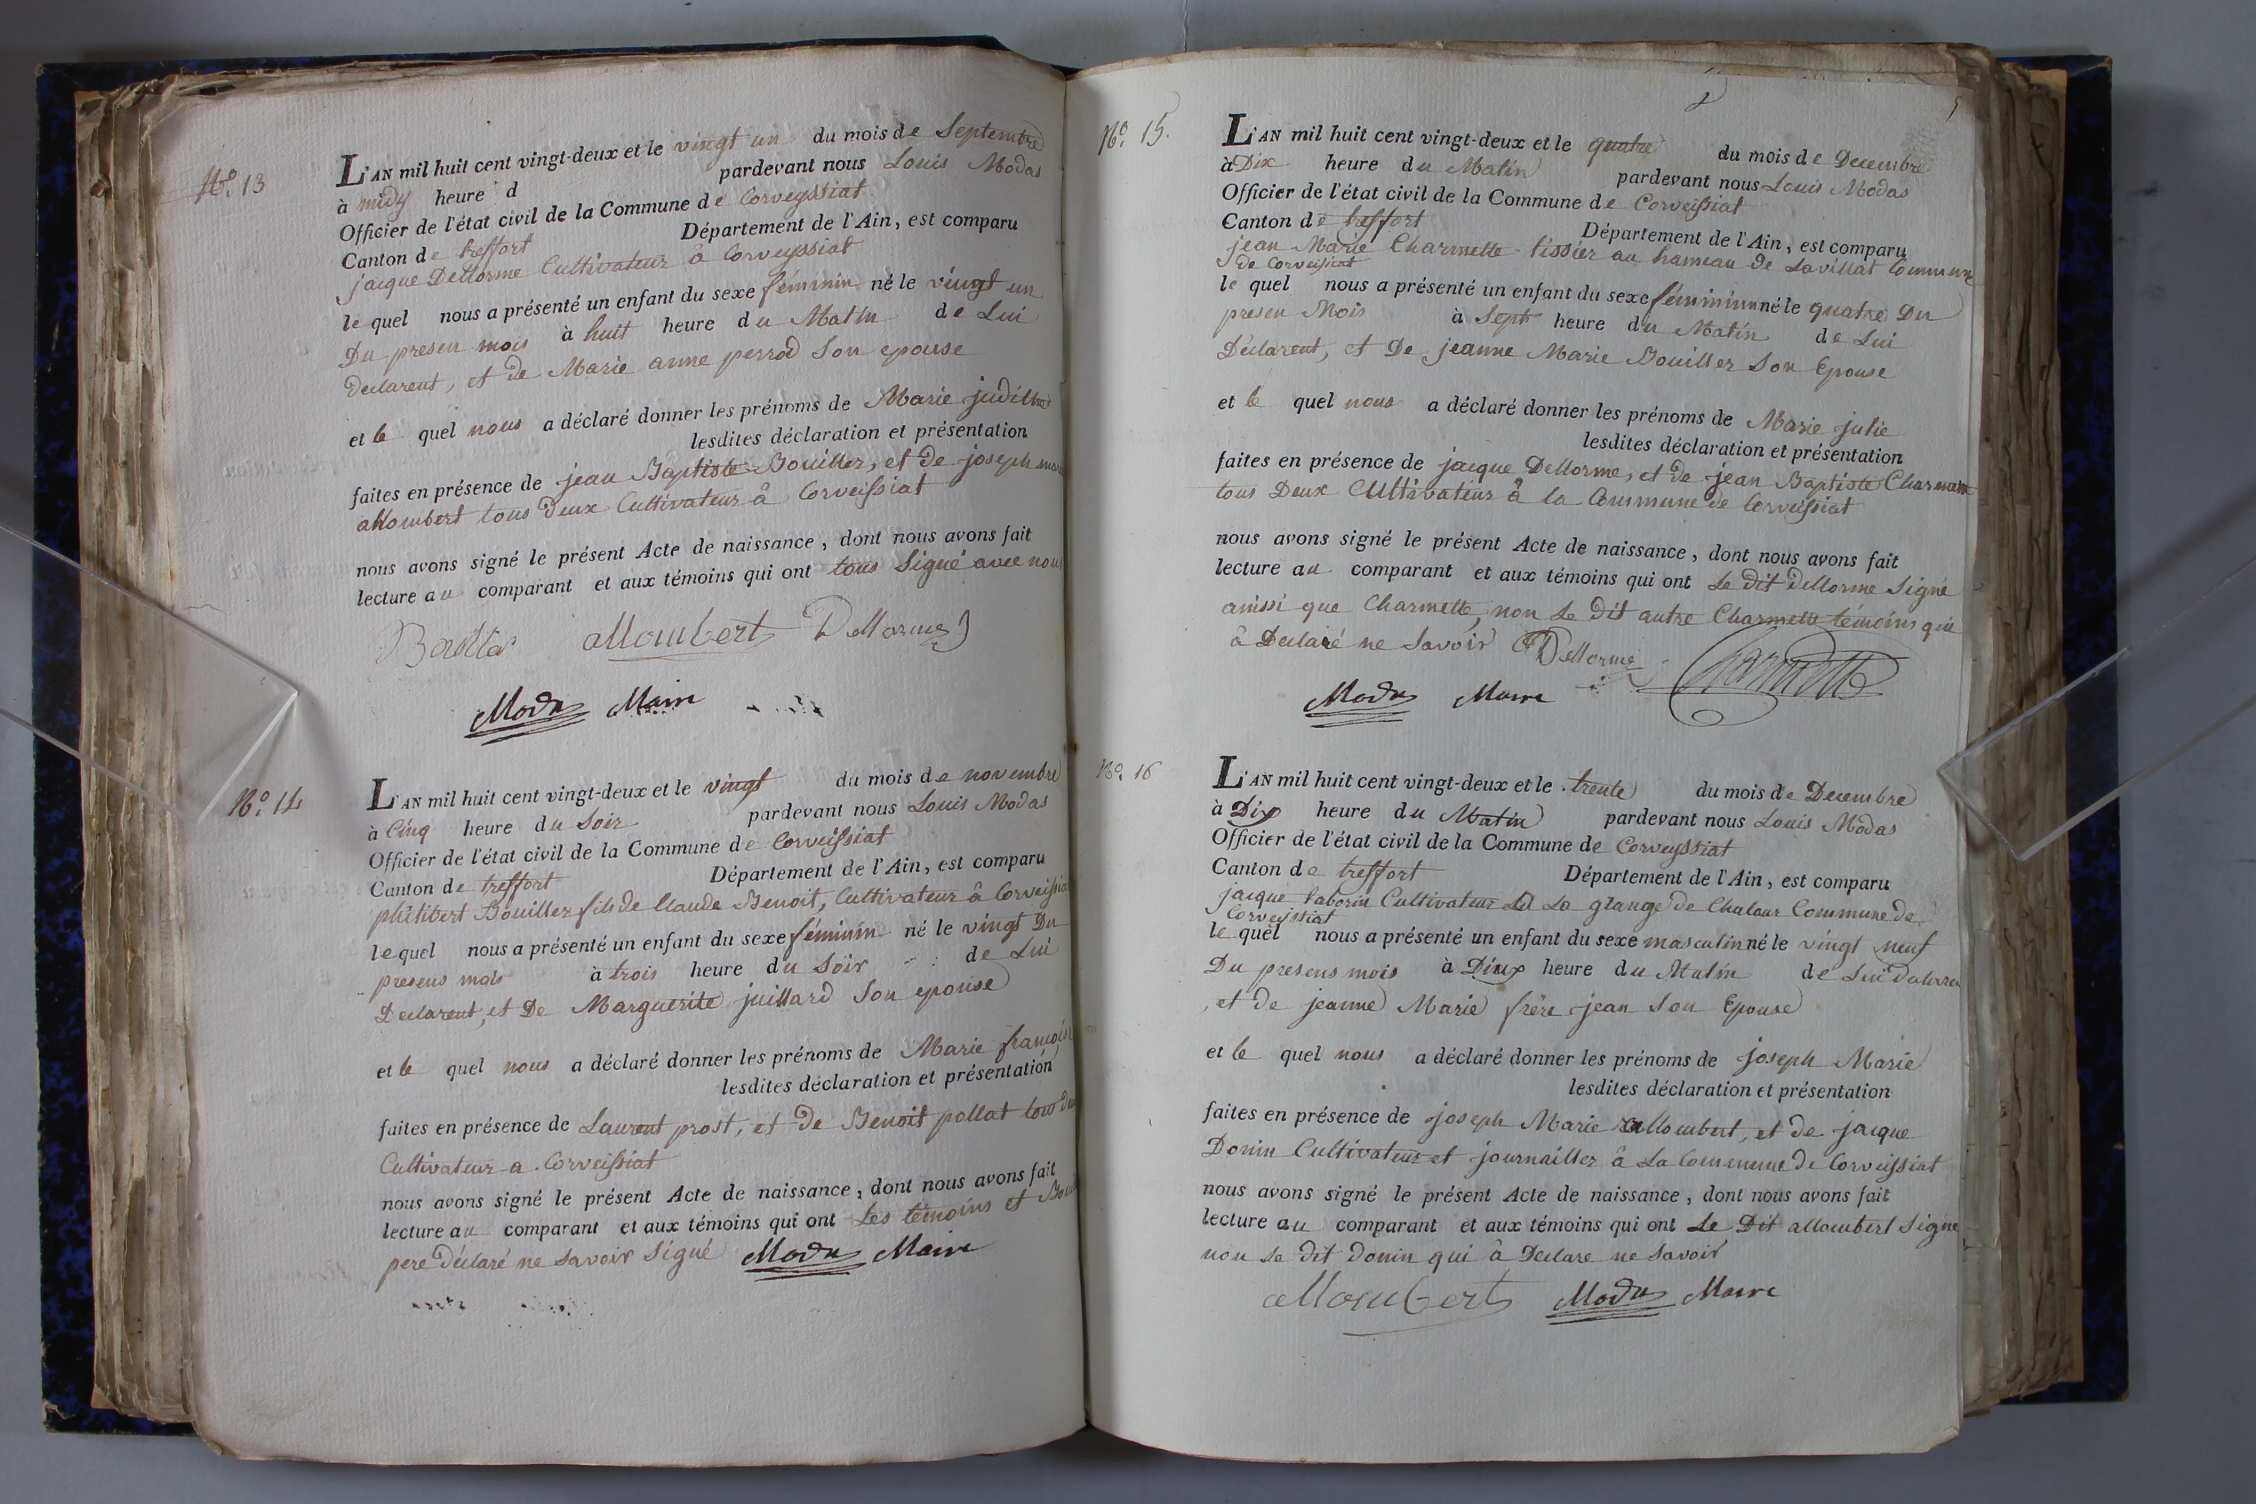 No. 13
L'AN mil huit cent vingt-deux et le vingt un du mois de Septembre
à midy heure d pardevant nous Louis Modas
Officier de l'état civil de la Commune de Corveyssiat
Canton de treffort Département de l'Ain, est comparu
jacque Dellorme Cultivateur â Corveyssiat
le quel nous a présenté un enfant du sexe féminin né le vingt un
Du presen mois à huit heure du Matin de Lui
declarent, et de Marie anne perrod Son epouse
et le quel nous a déclaré donner les prénoms de Marie judithe
lesdites déclaration et présentation
faites en présence de jean Baptiste Bouiller, et de joseph marie
allombert tous deux Cultivateur â Corveissiat
nous avons signé le présent Acte de naissance, dont nous avons fait
lecture au comparant et aux témoins qui ont tous Signé avec nous
allombert Dellorme
Modas Maire
No. 14
L'AN mil huit cent vingt-deux et le vingt du mois de novembre
à Cinq heure du Soir pardevant nous Louis Modas
Officier de l'état civil de la Commune de Corveissiat
Canton de treffort Département de l'Ain, est comparu
philibert Bouiller fils de Claude Benoit, Cultivateur â Corveissiat
le quel nous a présenté un enfant du sexe féminin né le vingt Du
presens mois à trois heure du Soir de Lui
Declarent, et De Marguerite juillard Son epouse
et le quel nous a déclaré donner les prénoms de Marie françoise
lesdites déclaration et présentation
faites en présence de Laurent prost, et de Benoit pollat tous deux
Cultivateur a Corveissiat
nous avons signé le présent Acte de naissance, dont nous avons fait
lecture au comparant et aux témoins qui ont Les témoins et
pere déclaré ne savoir Signé Modas Maire
No. 15.
L'AN mil huit cent vingt-deux et le quatre du mois de Decembre
à Dix heure du Matin pardevant nous Louis Modas
Officier de l'état civil de la Commune de Corveissiat
Canton de treffort Département de l'Ain, est comparu
jean Marie Charmette tissier au hameau de Lavillat Commune
de Corveissiat
le quel nous a présenté un enfant du sexe féminimn né le quatre Du
presen Mois à Sept heure du Matin de Lui
Déclarent, et De jeanne Marie Bouiller Son Epouse
et le quel nous a déclaré donner les prénoms de Marie julie
lesdites déclaration et présentation
faites en présence de jacque Dellorme, et de jean Baptiste Charmette
tous Deux Cultivateur â la Commune de Corveissiat
nous avons signé le présent Acte de naissance, dont nous avons fait
lecture au comparant et aux témoins qui ont Le dit dellorme Signé
anissi que Charmette, non Le Dit autre Charmette témoins qui
â Declaré ne Savoir Dellorme Charmette
Modas Maire
No. 16
L'AN mil huit cent vingt-deux et le trente du mois de Decembre
à Dix heure du Matin pardevant nous Louis Modas
Officier de l'état civil de la Commune de Corveyssiat
Canton de treffort Département de l'Ain, est comparu
jacque Vaborin Cultivateur La grange de Chalour Commune de
Corveyssiat
le quel nous a présenté un enfant du sexe masculin né le vingt neuf
Du presens mois à Diux heure du Matin de Lui
, et de jeanne Marie frère jean Son Epouse
et le quel nous a déclaré donner les prénoms de joseph Marie
lesdites déclaration et présentation
faites en présence de joseph Marie allombert, et de jacque
Donin Cultivateur et journailler â La Commune de Corveissiat
nous avons signé le présent Acte de naissance, dont nous avons fait
lecture au comparant et aux témoins qui ont Le Dit allombert Signé
non Le dit Donin qui â Declare ne Savoir
allombert Modas Maire